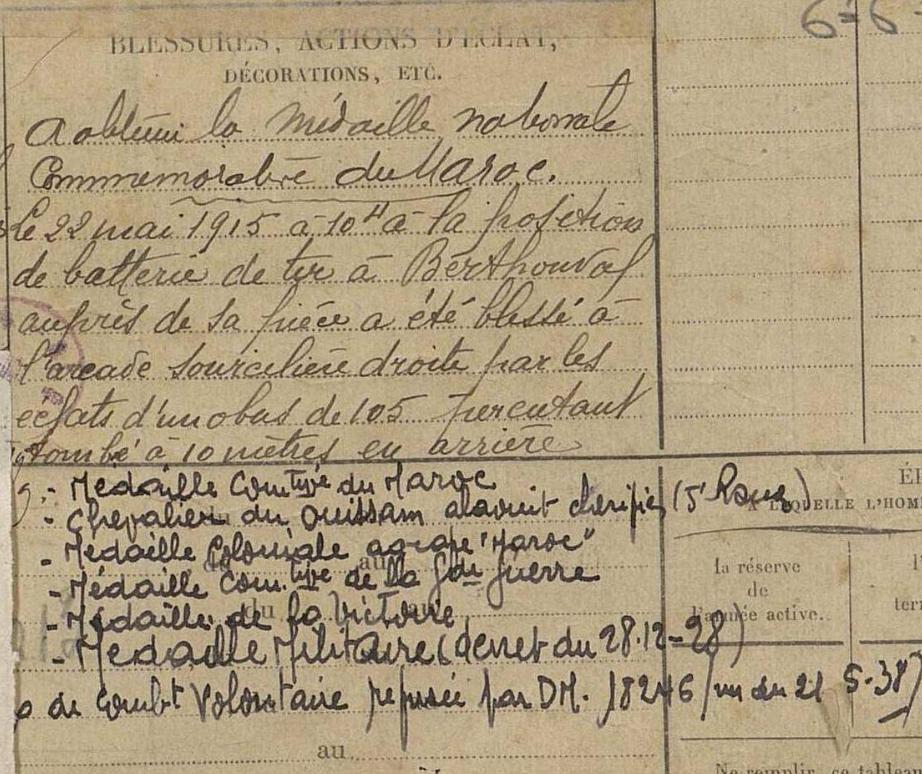 6-6-
BLESSURES, ACTIONS D'ÉCLAT,
DÉCORATIONS, ETC.
A obtenu la Médaille nationale
Commémorative du Maroc.
Le 22 mai 1915 à 10H à la position
de batterie de tir à Berthonval
auprès de sa pièce a été blessé à
l'arcade sourcilière droite par les
éclats d'un obus de 105 percutant
tombé à 10 mètres en arrière
- Médaille Comtive du Maroc
- Chevalier du Ouissam alaouit chérifien (5e
- Médaille Coloniale agrafe "Maroc"
- Médaille Comtive de la Gde guerre
- Médaille de la Victoire
- Médaille Militaire (décret du 28-12-28)
de Combt Volontaire refusée par DM. 18246 du 21 5-38
À LAQUELLE L'HOM
la réserve
de
l'armée active.
ter
au
Ne remplir ce tableau